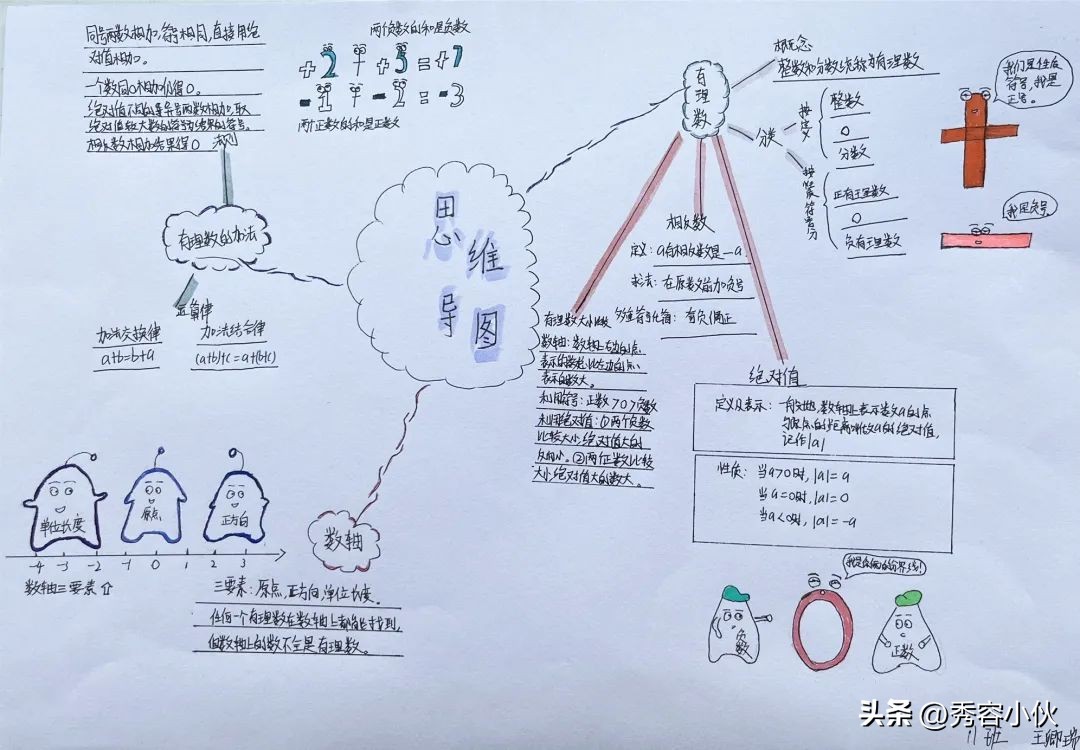 同号两数相加,符号相同,直接用绝
对值相加。
一个数同0相加仍得0。
绝对值不相等异号两数相加,取
绝对值较大数的符号为结果的符号。
相反数相加结果得0
法则
两个负数的和是负数
+2 + +5 = +7
-1 + -2 = -3
两个正数的和是正数
有理数的加法
运算律
加法交换律
a+b=b+a
加法结合律
(a+b)+c=a+(b+c)
思维导图
有理数
概念
整数和分数统称为有理数
分类
按定义
整数
0
分数
按符号分
正有理数
0
负有理数
我们是性质
符号,我是
正号。
我是负号。
相反数
定义:a的相反数是-a
求法:在原数前加负号
多重符号化简:奇负偶正
有理数大小比较
数轴:数轴上右边的点
表示的数总比左边的点
表示的数大。
利用符号:正数>0>负数
利用绝对值:①两个负数
比较大小,绝对值大的
反而小。②两个正数比较
大小绝对值大的数大。
绝对值
定义及表示:一般地,数轴上表示数a的点
与原点的距离叫做a的绝对值,
记作|a|
性质:当a>0时,|a|=a
当a=0时,|a|=0
当a<0时,|a|=-a
单位长度
原点
正方向
-4 -3 -2 -1 0 1 2 3
数轴三要素⇧
数轴
三要素:原点,正方向,单位长度。
任何一个有理数在数轴上都能找到,
但数轴上的数不全是有理数。
我是你们的分界线!
负数
0
正数
头条 @秀容小伙
11班